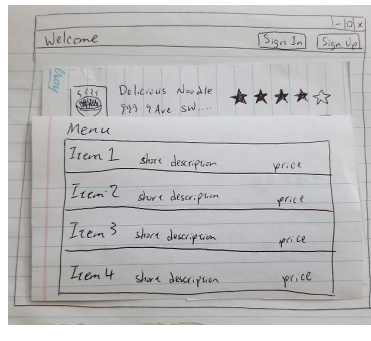 Welcome Sign In Sign Up
Delicious Noodle
999 9 Ave SW....
Menu
Item 1 short description price
Item 2 short description price
Item 3 short description price
Item 4 short description price